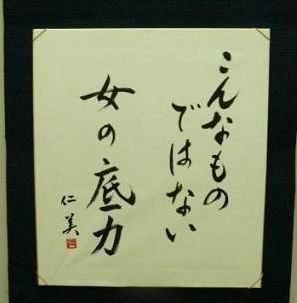 こんなもの
ではない
女の底力
仁美